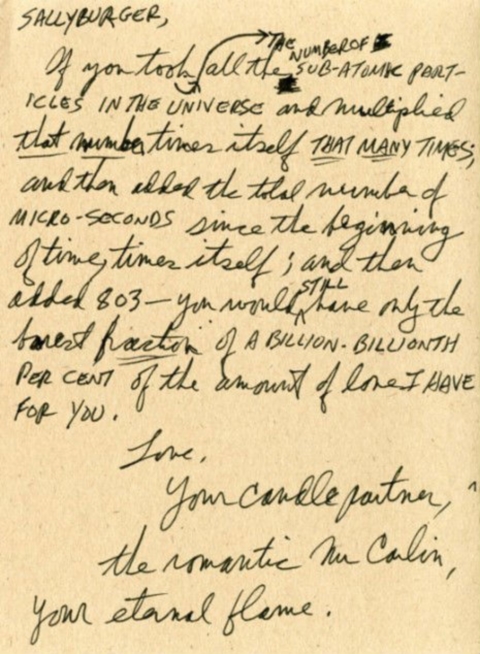 SALLYBURGER,
THE NUMBER OF
If you took all the SUB-ATOMIC PART-
ICLES IN THE UNIVERSE and multiplied
that number times itself THAT MANY TIMES;
and then added the total number of
MICRO-SECONDS since the beginning
of time, times itself; and then
added 803 — you would STILL have only the
barest fraction of A BILLION-BILLIONTH
PER CENT of the amount of love I HAVE
FOR YOU.
Love,
Your candle partner,
the romantic Mr Carlin,
your eternal flame.